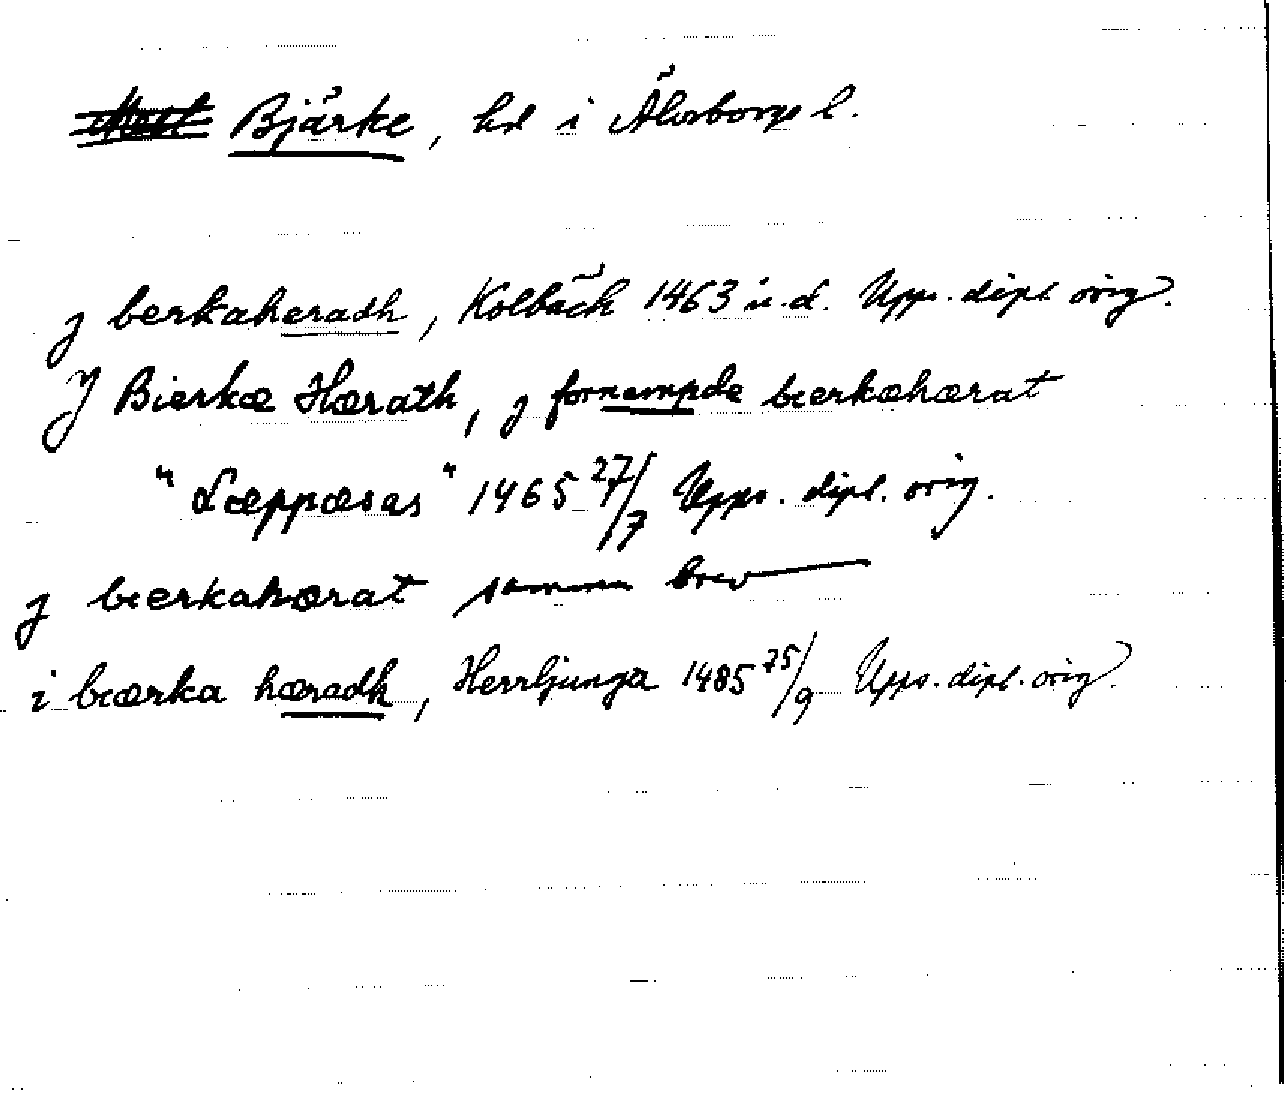 Bjärke, hd i Älvsborgs l.
j berkaheradh, Kolbäck 1463 u.d. Upps. dipl orig.
J Bierkæ Hærath, j fornempde bierkæhærat
"Læppæsas" 1465 27/7 Upps. dipl. orig.
j bierkahærat samma brev
i biærka hæradh, Herrljunga 1485 25/9 Upps. dipl. orig.